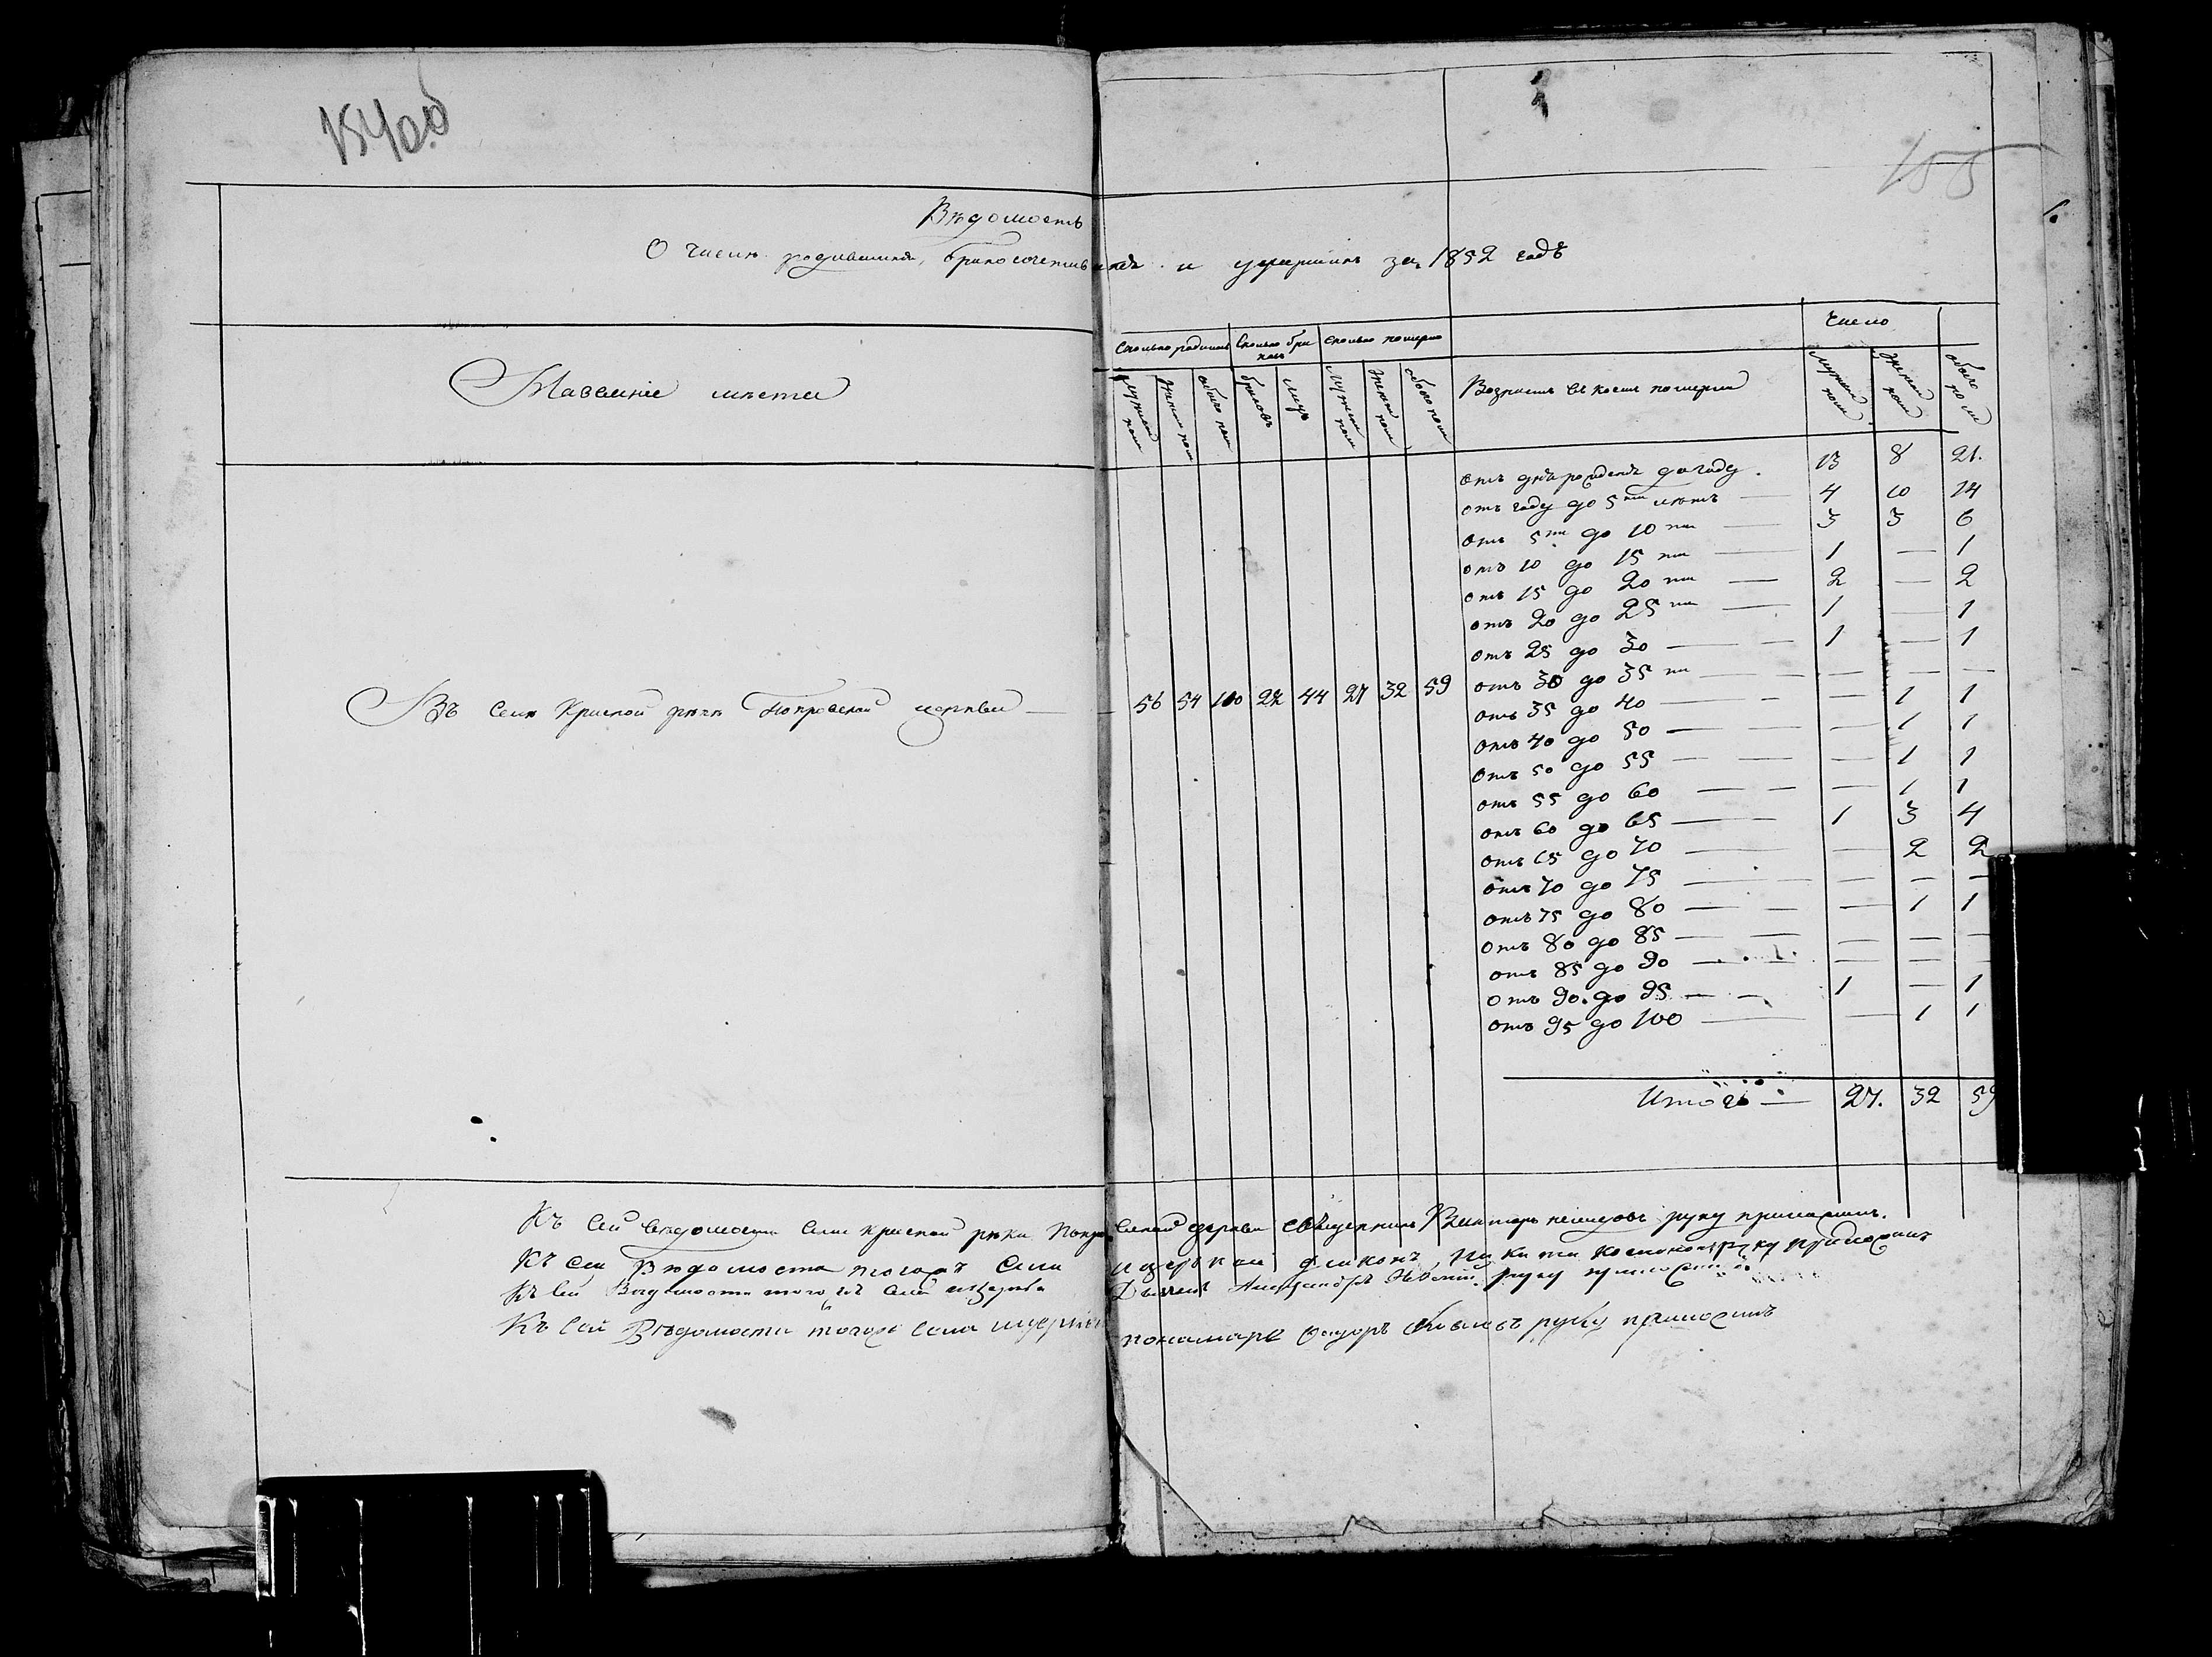 154об
155
Вѣдомость
О числѣ родившихся, бракосочетавшихся и умершихъ за 1852 годъ
Названіе мѣста
Сколько родилось Сколько браковъ Сколько померло
Возрастъ въ коемъ померли
Число
Мужеска пола Женска пола обоего пола браковъ лицъ Мужеска пола Женска пола обоего пола
Мужеска пола Женска пола обоего пола
отъ дня рожденія до году 13 8 21.
отъ году до 5ти лѣтъ — 4 10 14
отъ 5ти до 10ти — 3 3 6
отъ 10 до 15ти — 1 — 1
отъ 15 до 20ти — 2 — 2
отъ 20 до 25ти — 1 — 1
отъ 25 до 30 — 1 — 1
отъ 30 до 35ти — — — —
Въ Селѣ Красной рѣки Покровской церкви — 56 54 110 22 44 27 32 59
отъ 35 до 40 — — 1 1
отъ 40 до 50 — — 1 1
отъ 50 до 55 — — 1 1
отъ 55 до 60 — — 1 1
отъ 60 до 65 — 1 3 4
отъ 65 до 70 — — 2 2
отъ 70 до 75 — — — —
отъ 75 до 80 — — 1 1
отъ 80 до 85 — — — —
отъ 85 до 90 — — — —
отъ 90 до 95 — 1 — 1
отъ 95 до 100 — — 1 1
Итого — 27. 32 59
Къ сей вѣдомости села красной рѣки Покровской церкви священникъ Викторъ руку приложилъ.
Къ сей Вѣдомости тогожъ села и церкви діаконъ Никита руку приложилъ
Къ сей Вѣдомости тогожъ села и церкви Дьячекъ Александръ Невскій руку приложилъ
Къ сей Вѣдомости тогожъ села и церкви пономарь Ѳедоръ руку приложилъ